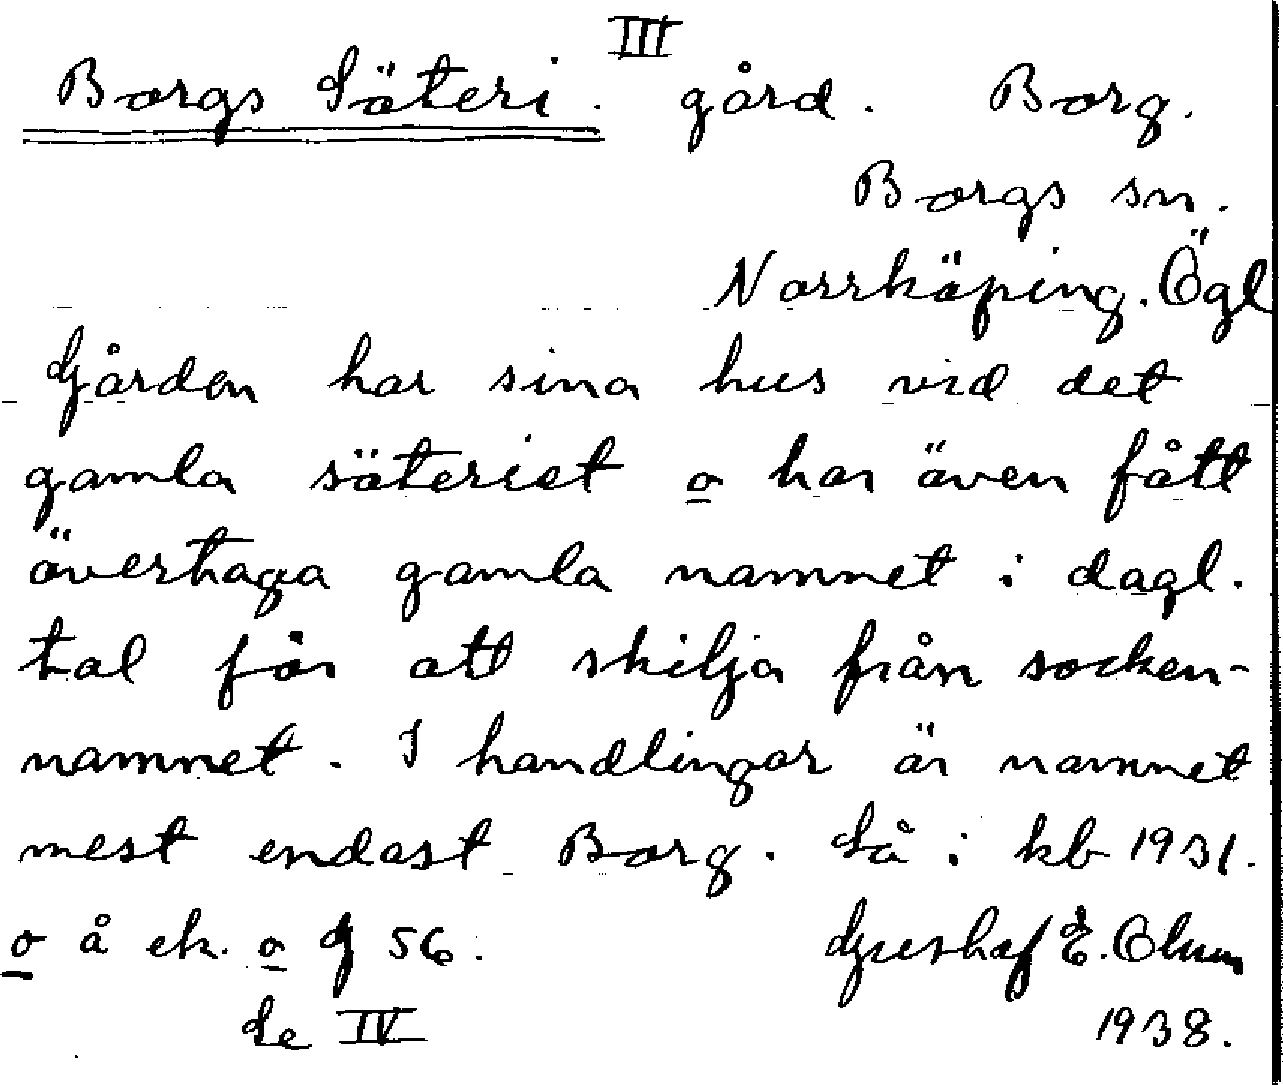 III
Borgs Säteri. gård. Borg.
Borgs sn.
Norrköping. Ögl
Gården har sina hus vid det
gamla säteriet o har även fått
övertaga gamla namnet i dagl.
tal för att skilja från socken-
namnet. I handlingar är namnet
mest endast Borg. Så i kb 1931.
o å ek. o G 56. Gustaf E. Olum
Se IV 1938.